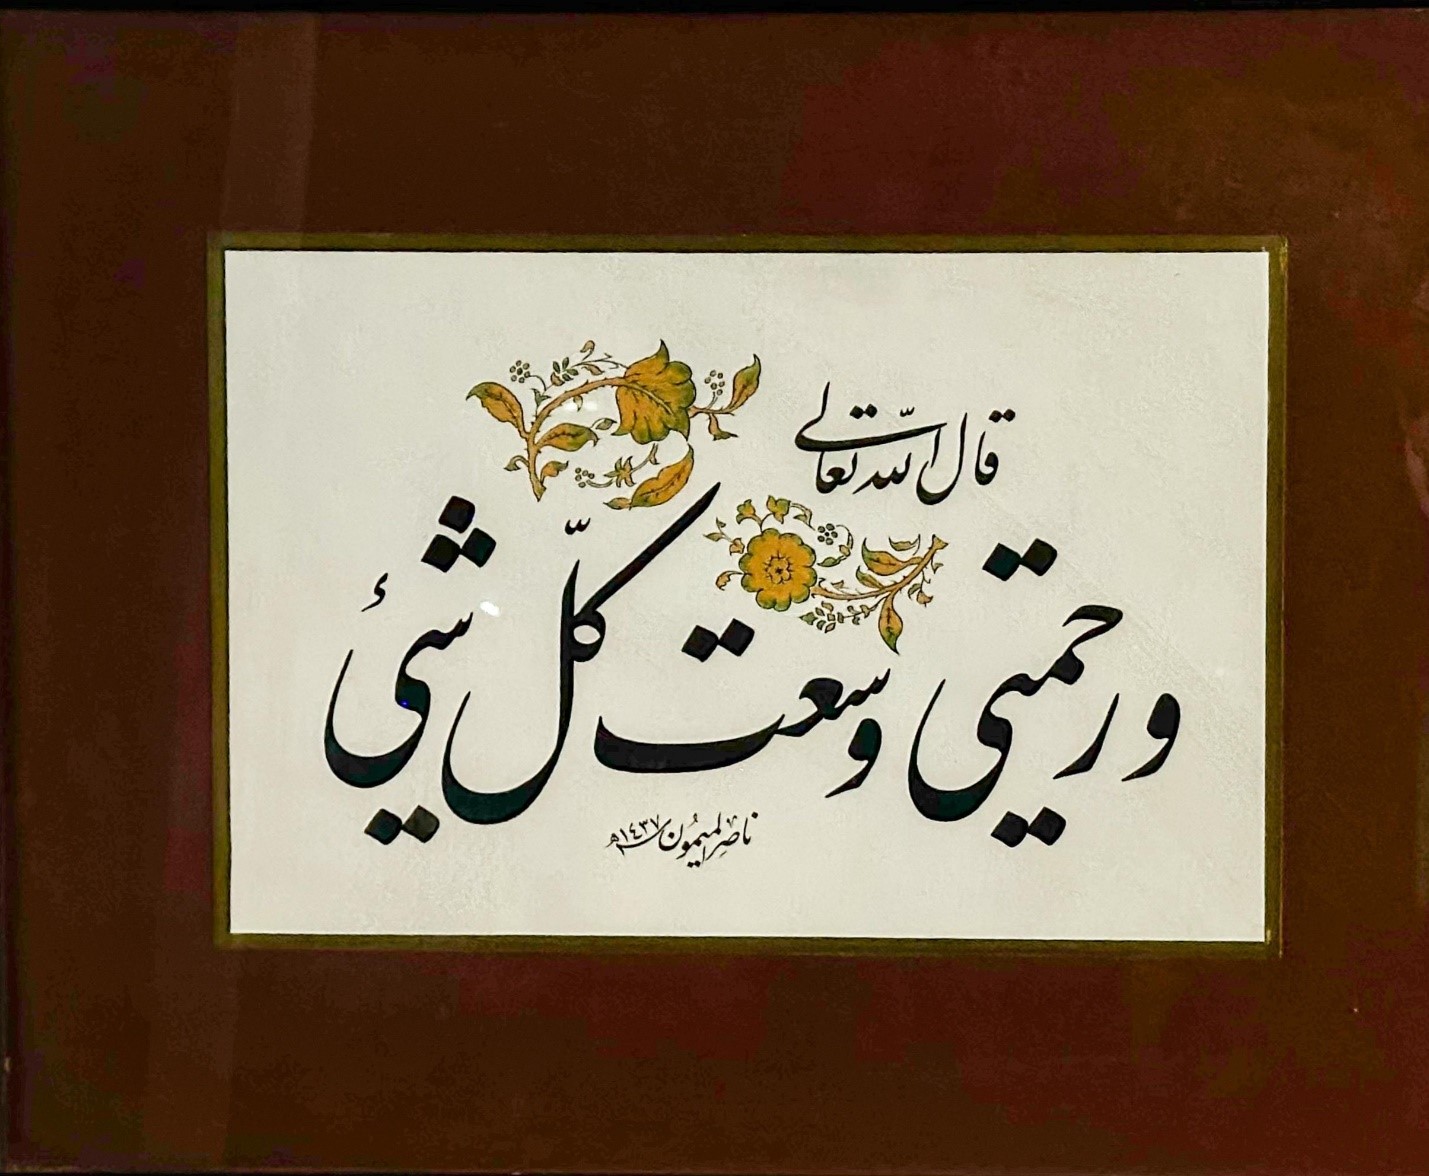 قال الله تعالى
ورحمتي وسعت كلّ شيئ
ناصر الميمون ١٤٣٧هـ